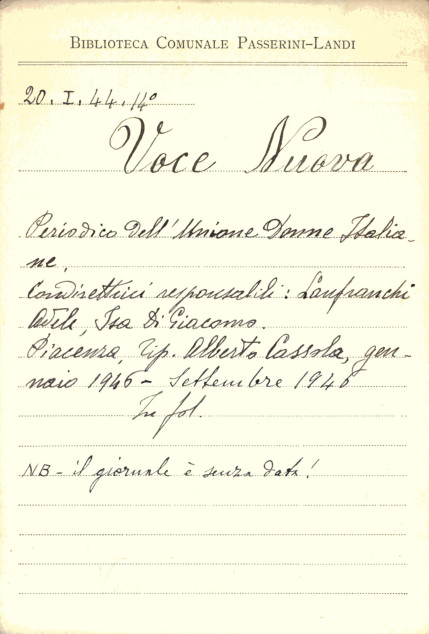 BIBLIOTECA COMUNALE PASSERINI-LANDI
20. I. 44. 14°
Voce Nuova
Periodico dell'Unione Donne Italia-
ne.
Condirettrici responsabili: Lanfranchi
Adele, Isa Di Giacomo.
Piacenza, Tip. Alberto Cassola, gen-
naio 1946 - Settembre 1946
In fol.
NB - il giornale è senza data!